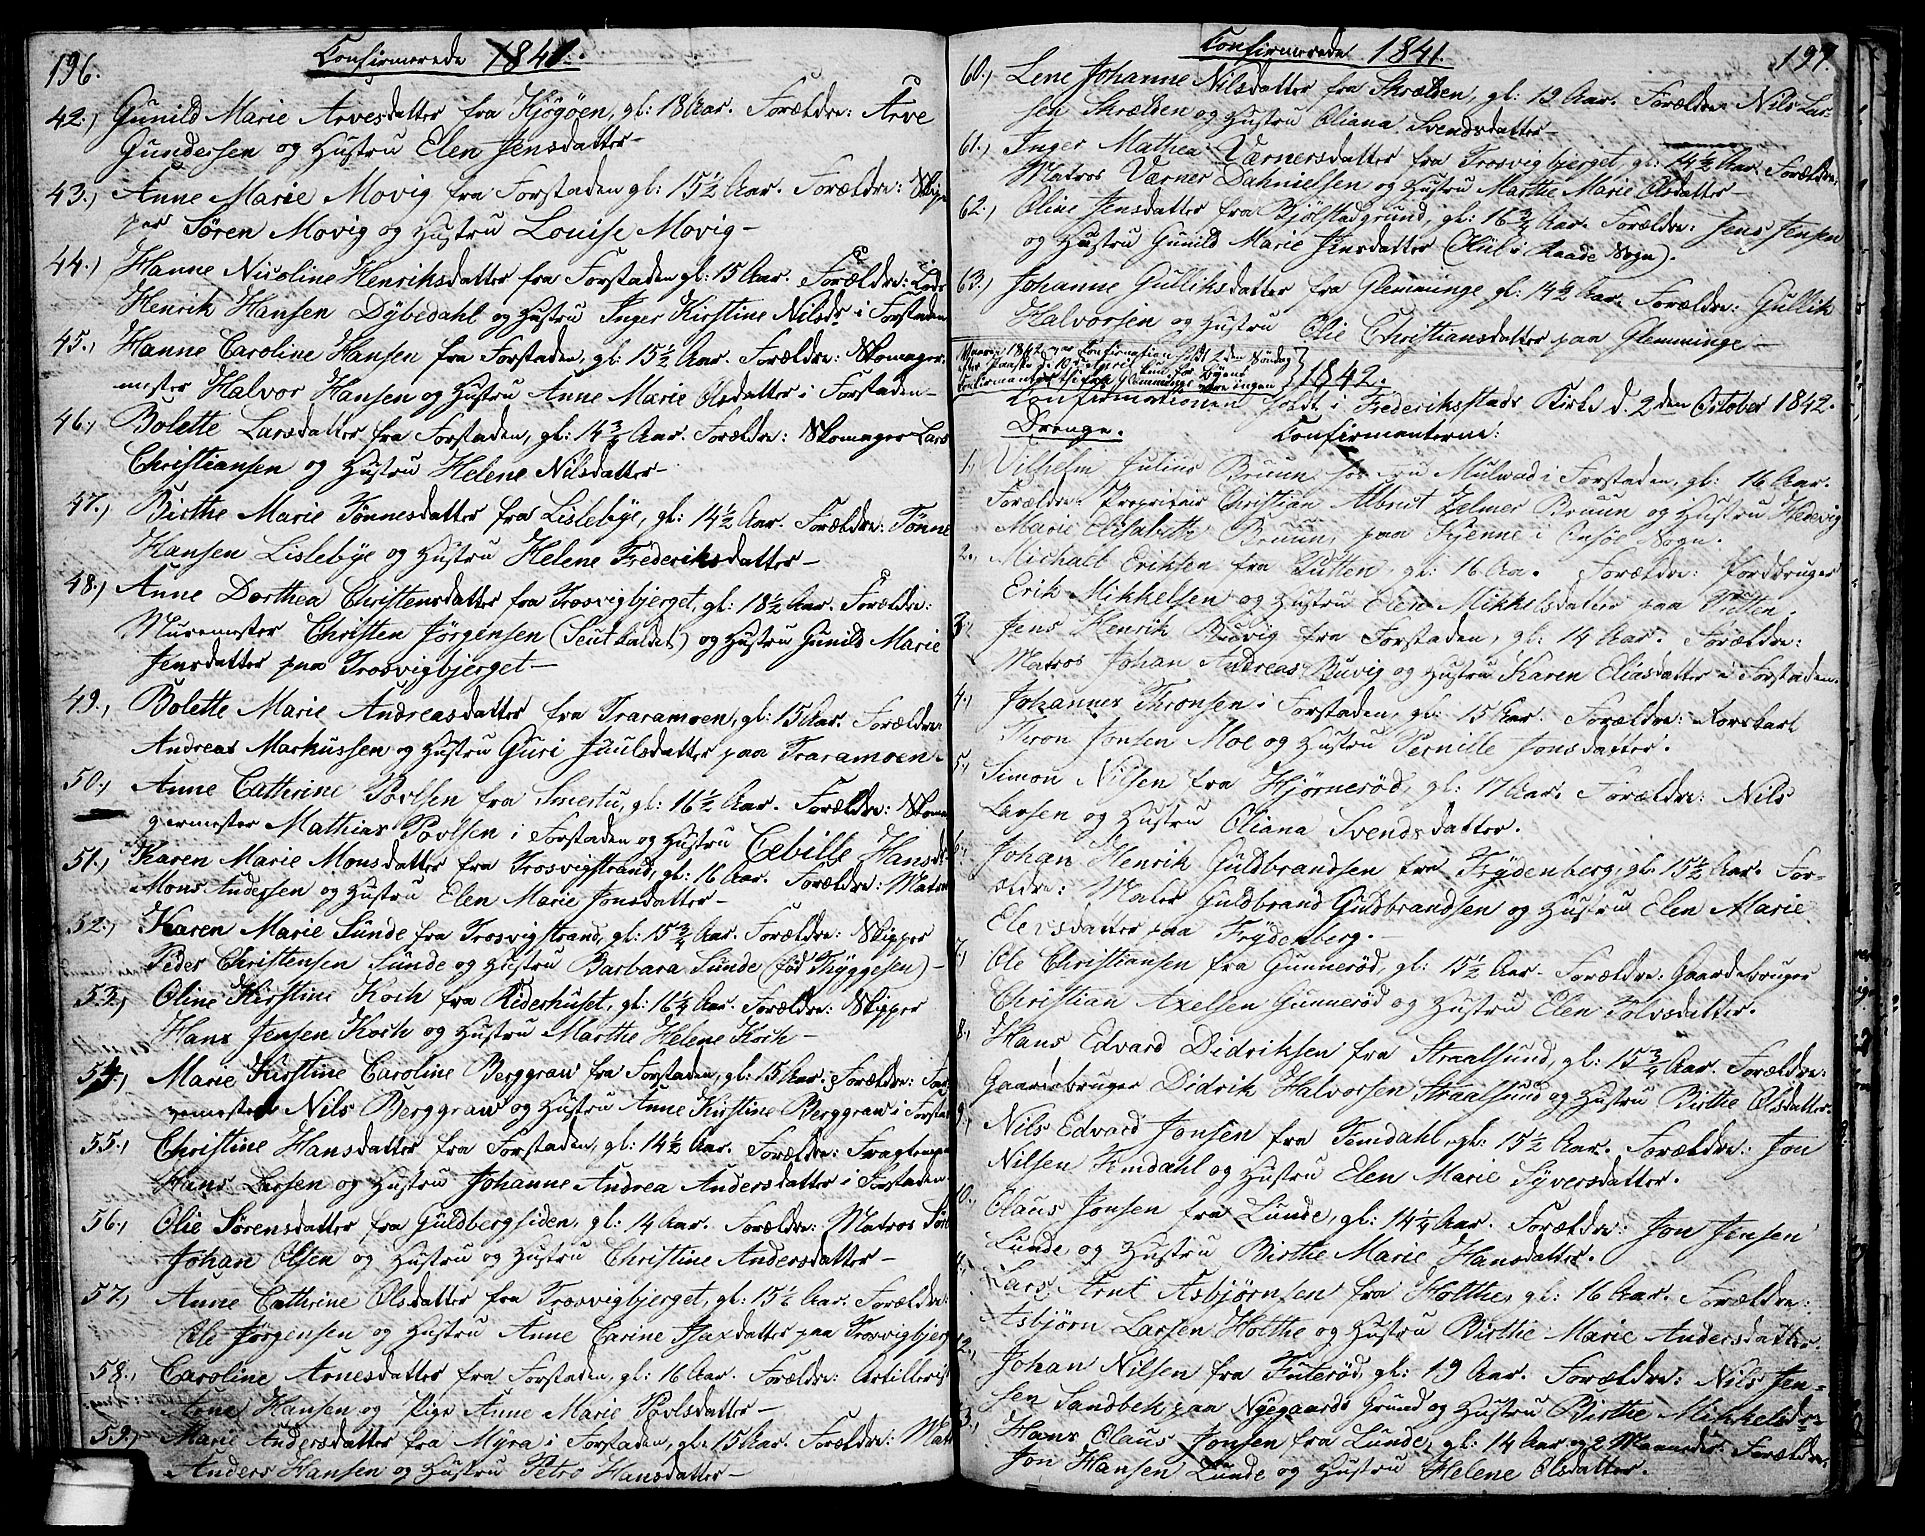 196.
Confirmerede 1841.
42.) Gunild Marie Arvesdatter fra Kjøgøen, gl: 18 Aar. Forældre: Arve
Gundersen og Hustru Elen Jensdatter—
43.) Anne Marie Movig fra Forstaden gl: 15½ Aar. Forældre: Skip-
per Søren Movig og Hustru Louise Movig—
44.) Hanne Nicoline Henriksdatter fra Forstaden gl: 15 Aar. Forældre: Lods
Henrik Hansen Dybedahl og Hustru Inger Kirstine Nilsdr i Forstaden
45.) Hanne Caroline Hansen fra Forstaden, gl: 15½ Aar. Forældre: Skomager-
mester Halvor Hansen og Hustru Anne Marie Olsdatter i Forstaden—
46.) Bolette Larsdatter fra Forstaden, gl: 14¾ Aar. Forældre: Skomager Lars
Christiansen og Hustru Helene Nilsdatter—
47.) Birthe Marie Tønnesdatter fra Lislebye, gl: 14½ Aar. Forældre: Tønne
Hansen Lislebye og Hustru Helene Frederiksdatter—
48.) Anne Dorthea Christensdatter fra Trosvigbjerget, gl: 18½ Aar. Forældre:
Muremester Christen Jørgensen og Hustru Gunild Marie
Jensdatter paa Trosvigbjerget—
49.) Bolette Marie Andreasdatter fra Traramoen, gl: 15 Aar. Forældre:
Andreas Markussen og Hustru Guri Juulsdatter paa Traramoen—
50.) Anne Cathrine Povlsen fra Smertu, gl: 16½ Aar. Forældre: Skoma-
germester Mathias Povlsen i Forstaden og Hustru Cebille Hansdr
51.) Karen Marie Monsdatter fra Trosvigstrand, gl: 16 Aar. Forældre: Matros
Mons Andersen og Hustru Elen Marie Jonsdatter—
52.) Karen Marie Sunde fra Trosvigstrand, gl: 15¾ Aar. Forældre: Skipper
Peder Christensen Sunde og Hustru Barbara Sunde (fød Thyggesen)—
53.) Oline Kirstine Koch fra Riderhuset, gl: 16¼ Aar. Forældre: Skipper
Hans Jensen Koch og Hustru Marthe Helene Koch—
54.) Marie Kirstine Caroline Berggraw fra Forstaden, gl: 15 Aar. Forældre: Far-
vemester Nils Berggraw og Hustru Anne Kirstine Berggraw i Forstad
55.) Christine Hansdatter fra Forstaden, gl: 14½ Aar. Forældre:
Hans Larsen og Hustru Johanne Andrea Andersdatter i Forstaden
56.) Olie Sørensdatter fra Guldbergsiden, gl: 14 Aar. Forældre: Matros Sør
Johan Olsen og Hustru og Hustru Christine Andersdatter—
57.) Anne Cathrine Olsdatter fra Trosvigbjerget, gl: 15½ Aar. Forældre:
Ole Jørgensen og Hustru Anne Carine Isaxdatter paa Trosvigbjer
58.) Caroline Arnesdatter fra Forstaden, gl: 16 Aar. Forældre: Artillerist
Arne Hansen og Pige Anne Marie Povlsdatter—
59.) Marie Andersdatter fra Myra i Forstaden, gl: 15 Aar. Forældre: Mat
Anders Hansen og Hustru Petro Hansdatter—
197.
Confirmerede 1841.
60.) Lene Johanne Nilsdatter fra Skrælden, gl: 19 Aar. Forældre Nils Lar-
sen Skrælden og Hustru Oliana Svendsdatter—
61.) Inger Mathea Værnersdatter fra Trosvigbjerget gl: 14½ Aar. Forældre:
Matros Værner Dahnielsen og Hustru Marthe Marie Olsdatter—
62.) Oline Jensdatter fra Bjølstadgrund, gl: 16¾ Aar. Forældre: Jens Jensen
og Hustru Gunild Marie Jensdatter (Hub i Raade Sogn).
63.) Johanne Gulliksdatter fra Glemminge gl: 14¾ Aar. Forældre: Gullik
Halvorsen og Hustru Olie Christiansdatter paa Glemminge—
1842 var Confirmation holdt 2den Søndag
efter Paaske d. 10de April kun for Byens
Confirmanter, thi fra Glemminge vare ingen
1842.
Confirmationen holdt i Frederiksstads Kirke d. 2den October 1842.
Drenge. Confirmanterne:
1., Vilhelm Julius Bruun hos Mulwad i Forstaden, gl: 16 Aar.
Forældre: Proprietair Christian Albrecht Zelmer Bruun og Hustru Hedevig
Marie Elisabeth Bruun, paa Kjenne i Onsøe Sogn.
2., Michael Eriksen fra Putten, gl: 16 Aa. Forældre: Jordbruger
Erik Mikkelsen og Hustru Elen Mikkelsdatter paa Putten.
3., Jens Henrik Buvig fra Forstaden, gl: 14 Aar. Forældre:
Matros Johan Andreas Buvig og Hustru Karen Eliasdatter i Forstaden.
4., Johannes Thronsen i Forstaden, gl: 15 Aar. Forældre: Rorskarl
Thron Jonsen Moe og Hustru Pernille Jonsdatter.
5., Simon Nilsen fra Hjørnerød, gl: 17 Aar. Forældre: Nils
Larsen og Hustru Oliana Svendsdatter.
6., Johan Henrik Guldbrandsen fra Frydenberg, gl: 15½ Aar. For-
ældre: Maler Guldbrand Guldbrandsen og Hustru Elen Marie
Elevsdatter paa Frydenberg.
7., Ole Christiansen fra Gunnerød, gl: 15½ Aar. Forældre: Gaardebruger
Christian Axelsen Gunnerød og Hustru Elen Rolvsdatter.
8., Hans Edvard Didriksen fra Straalsund, gl: 15¾ Aar. Forældre:
Gaardebruger Didrik Halvorsen Straalsund og Hustru Birthe Olsdatter.
9., Nils Edvard Jonsen fra Femdahl, gl: 15½ Aar. Forældre: Jon
Nilsen Femdahl og Hustru Elen Marie Syversdatter.
10., Olaus Jonsen fra Lunde, gl: 14¼ Aar. Forældre: Jon Jensen
Lunde og Hustru Birthe Marie Hansdatter.
11., Lars Arnt Asbjørnsen fra Holthe, gl: 16 Aar. Forældre:
Asbjørn Larsen Holthe og Hustru Birthe Marie Andersdatter.
12., Johan Nilsen fra Futerød, gl: 19 Aar. Forældre: Nils Jen-
sen Sandbek paa Nygaards Grund og Hustru Birthe Mikkelsdr
13., Hans Olaus Jonsen fra Lunde, gl: 14 Aar og 2 Maaneder. Forældre:
Jon Hansen Lunde og Hustru Helene Olsdatter.